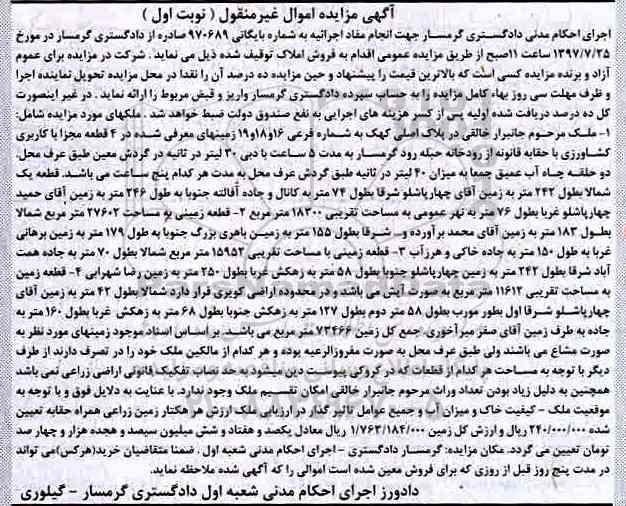 آگهی مزایده اموال غیرمنقول ( نوبت اول )
اجرای احکام مدنی دادگستری گرمسار جهت انجام مفاد اجرائیه به شماره بایگانی ۹۷۰۶۸۹ صادره از دادگستری گرمسار در مورخ
۱۳۹۷/۷/۲۵ ساعت ۱۱صبح از طریق مزایده عمومی اقدام به فروش املاک توقیف شده ذیل می نماید . شرکت در مزایده برای عموم
آزاد و برنده مزایده کسی است که بالاترین قیمت را پیشنهاد و حین مزایده ده درصد آن را نقدا در محل مزایده تحویل نماینده اجرا
و ظرف مهلت سی روز بهاء کامل مزایده را به حساب سپرده دادگستری گرمسار واریز و قبض مربوط را ارائه نماید . در غیر اینصورت
کل ده درصد دریافت شده اولیه پس از کسر هزینه های اجرایی به نفع صندوق دولت ضبط خواهد شد . ملکهای مورد مزایده شامل:
۱- ملک مرحوم جانبرار خالقی در پلاک اصلی کهک به شماره فرعی ۱۶و۱۸و۱۹ زمینهای معرفی شده در ۴ قطعه مجزا با کاربری
کشاورزی با حقابه قانونه از رودخانه حبله رود گرمسار به مدت ۵ ساعت با دبی ۳۰ لیتر در ثانیه در گردش معین طبق عرف محل.
دو حلقه چاه آب عمیق جمعا به میزان ۴۰ لیتر در ثانیه طبق گردش عرف محل به مدت هر کدام پنج ساعت می باشند. قطعه یک
شمالا بطول ۲۴۲ متر به زمین آقای چهارپاشلو شرقا بطول ۷۴ متر به کانال و جاده آفالته جنوبا به طول ۲۴۶ متر به زمین آقای حمید
چهارپاشلو غربا بطول ۷۶ متر به نهر عمومی به مساحت تقریبی ۱۸۳۰۰ متر مربع ۲- قطعه زمینی به مساحت ۲۷۶۰۲ متر مربع شمالا
بطول ۱۸۳ متر به زمین آقای محمد برآورده و... شرقا بطول ۱۵۵ متر به زمین باهری بزرگ جنوبا به طول ۱۷۹ متر به زمین برهانی
غربا به طول ۱۵۰ متر به جاده خاکی و هرزآب ۳- قطعه زمینی با مساحت تقریبی ۱۵۹۵۲ متر مربع شمالا بطول ۷۰ متر به جاده همت
آباد شرقا بطول ۲۴۲ متر به زمین چهارپاشلو جنوبا بطول ۵۸ متر به زهکش غربا بطول ۲۵۰ متر به زمین رضا شهرابی ۴- قطعه زمین
به مساحت تقریبی ۱۱۶۱۲ متر مربع به صورت آیش می باشد و در محدوده اراضی کویری قرار دارد شمالا بطول ۴۲ متر به زمین آقای
چهارپاشلو شرقا اول بطور مورب بطول ۵۸ متر دوم بطول ۱۲۷ متر به زهکش جنوبا بطول ۶۸ متر به زهکش غربا بطول ۱۶۰ متر به
جاده به طرف زمین آقای صفر میرآخوری. جمع کل زمین ۷۳۴۶۶ متر مربع می باشد. بر اساس اسناد موجود زمینهای مورد نظر به
صورت مشاع می باشند ولی طبق عرف محل به صورت مفروزالرعیه بوده و هر کدام از مالکین ملک خود را در تصرف دارند از طرف
دیگر با توجه به مساحت هر کدام از قطعات که در کروکی پیوست دین میشود به حد نصاب تفکیک قانونی اراضی زراعی نمی باشد
همچنین به دلیل زیاد بودن تعداد وراث مرحوم جانبرار خالقی امکان تقسیم ملک وجود ندارد. با عنایت به دلایل فوق و با توجه به
موقعیت ملک - کیفیت خاک و میزان آب و جمیع عوامل تاثیر گذار در ارزیابی ملک ارزش هر هکتار زمین زراعی همراه حقابه تعیین
شده ۲۴۰/۰۰۰/۰۰۰ ریال و ارزش کل زمین ۱/۷۶۳/۱۸۴/۰۰۰ ریال معادل یکصد و هفتاد و شش میلیون سیصد و هجده هزار و چهار صد
تومان تعیین می گردد. مکان مزایده: گرمسار دادگستری - اجرای احکام مدنی شعبه اول . ضمنا متقاضیان خرید(هرکس)می تواند
در مدت پنج روز قبل از روزی که برای فروش معین شده است اموالی را که آگهی شده ملاحظه نماید.
دادورز اجرای احکام مدنی شعبه اول دادگستری گرمسار - گیلوری